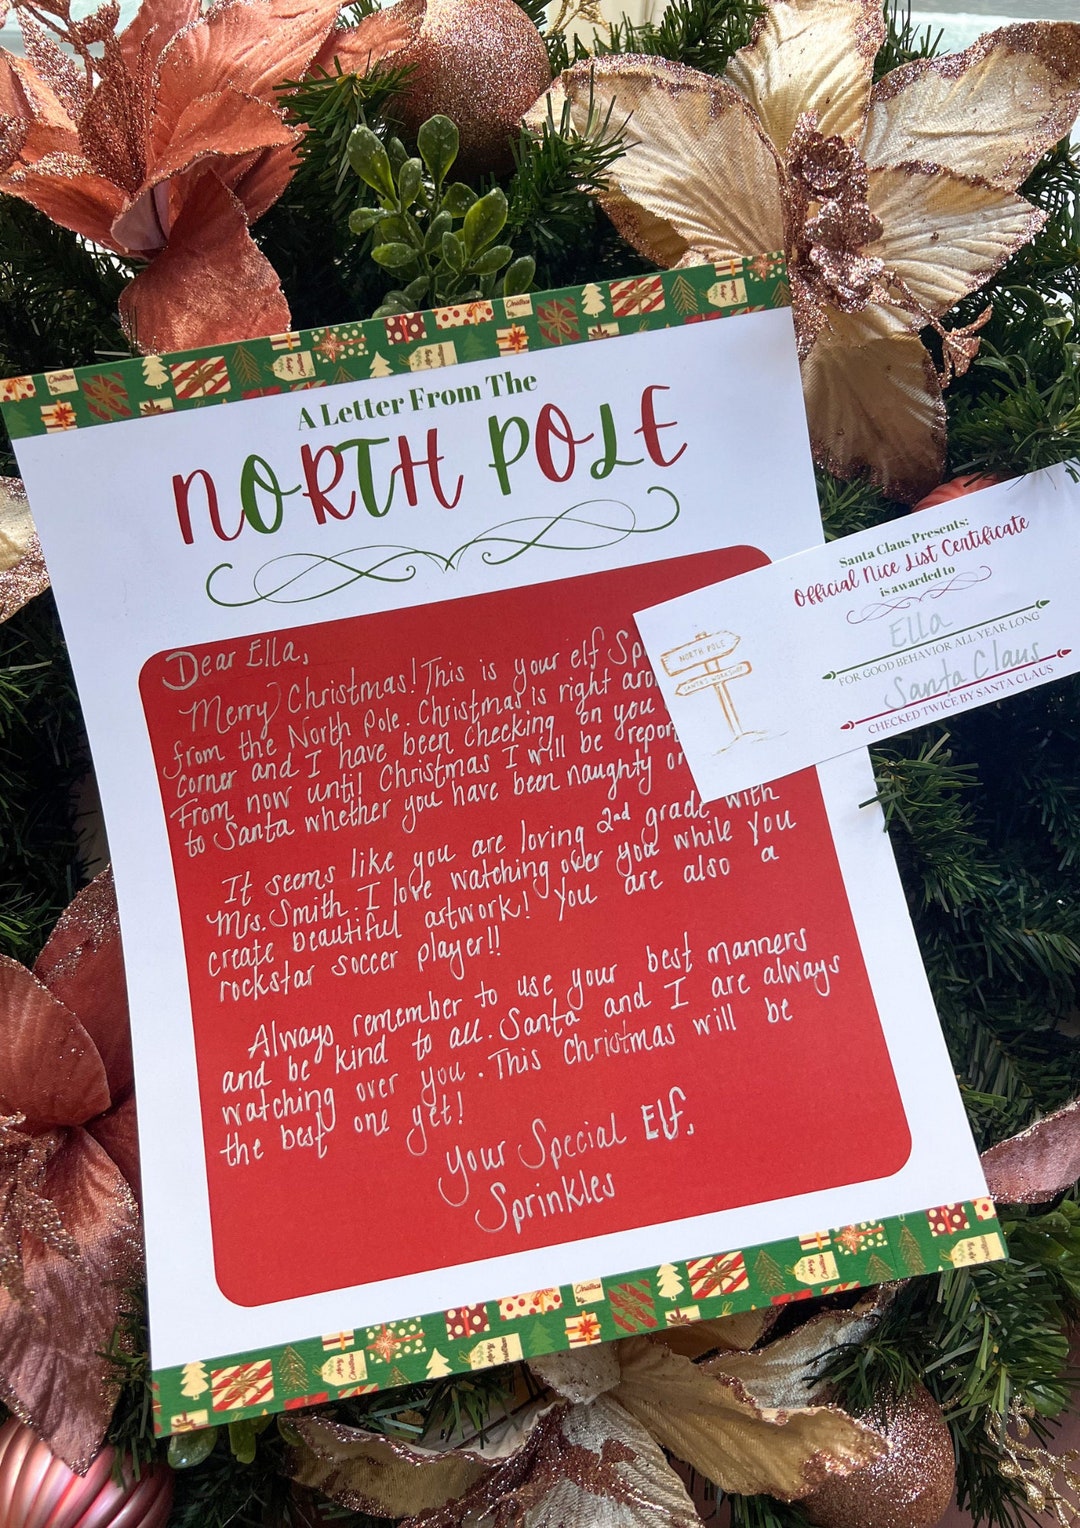 A Letter From The
NORTH POLE
Dear Ella,
Merry Christmas! This is your elf Sp
from the North Pole. Christmas is right aro
corner and I have been checking on you
From now until Christmas I will be repor
to Santa whether you have been naughty or
It seems like you are loving 2nd grade with
Mrs. Smith. I love watching over you while you
create beautiful artwork! You are also a
rockstar soccer player!!
Always remember to use your best manners
and be kind to all. Santa and I are always
watching over you. This Christmas will be
the best one yet!
Your Special Elf,
Sprinkles
Santa Claus Presents:
Official Nice List Certificate
is awarded to
Ella
FOR GOOD BEHAVIOR ALL YEAR LONG
Santa Claus
CHECKED TWICE BY SANTA CLAUS
NORTH POLE
SANTA'S WORKSHOP